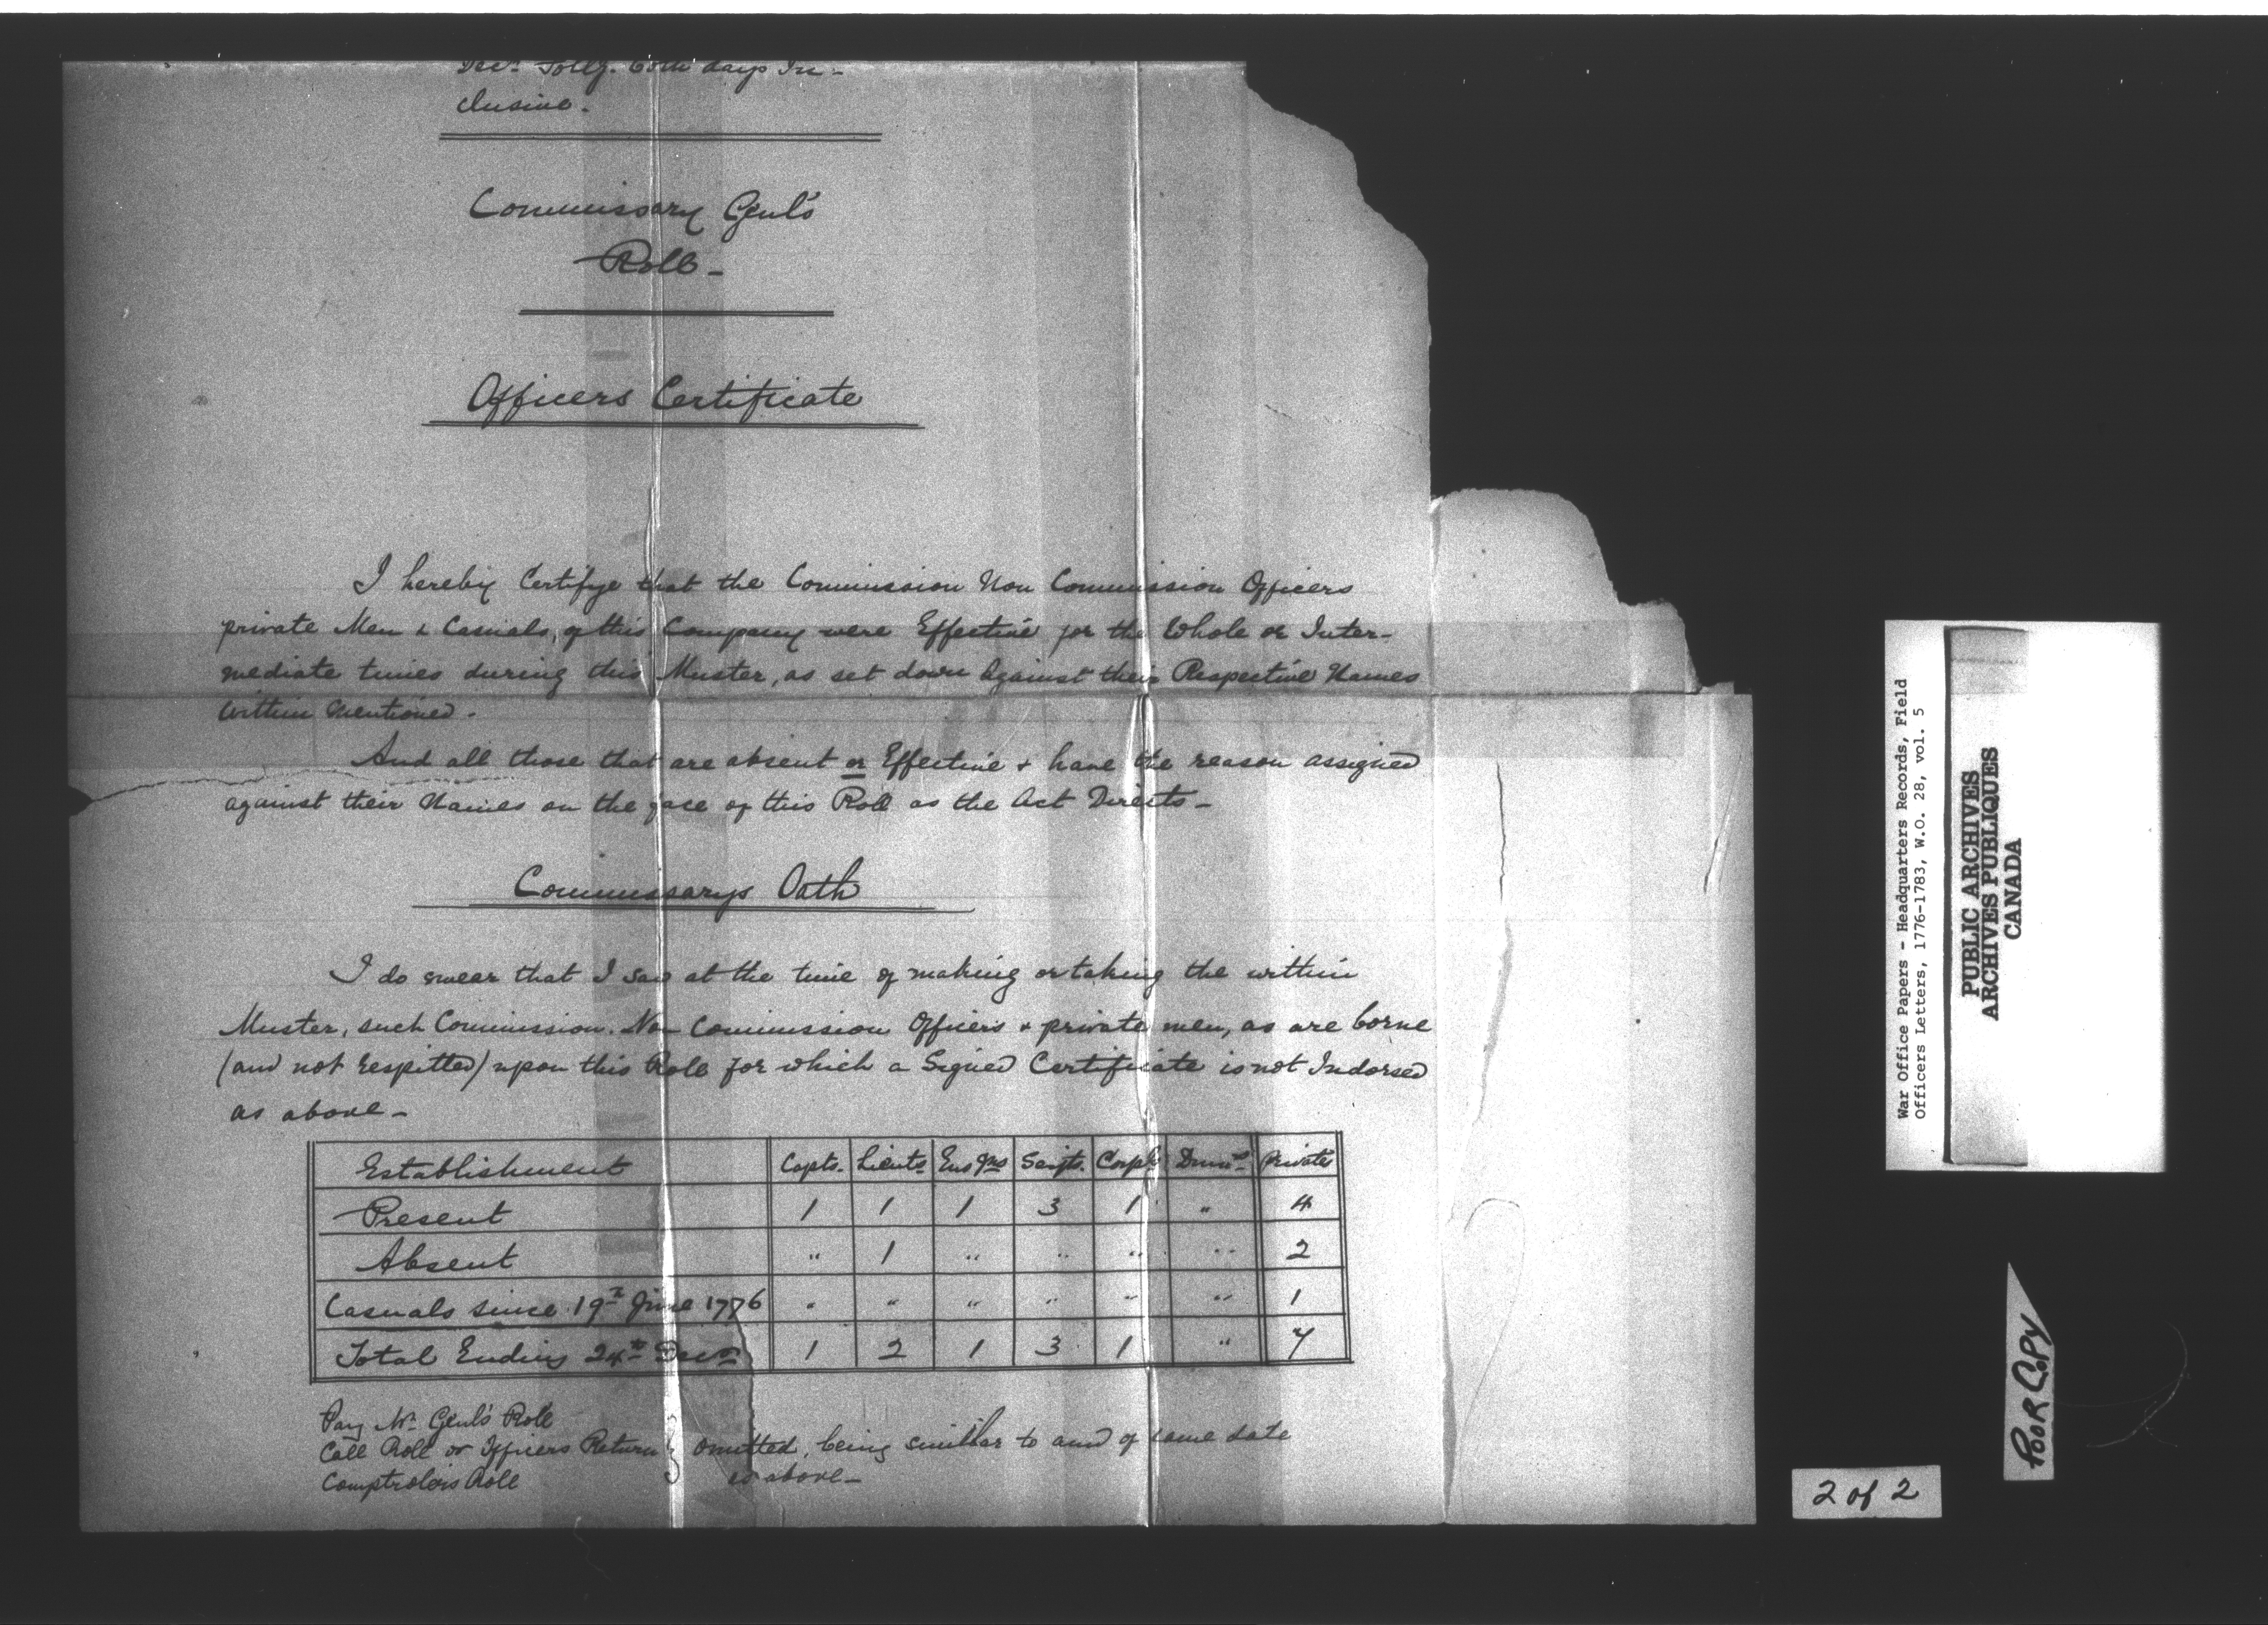 Decr. follg. both days In-
clusive.
Commissary Genl's
Roll-
Officers Certificate
I hereby Certifye that the Commission Non Commission Officers
private Men & Casuals, of this Company were Effective for the Whole or Inter-
mediate times during this Muster, as set down Against their Respective Names
within Mentioned.
And all those that are absent or Effective & have the reason assigned
against their Names on the face of this Roll as the Act Directs-
Commissarys Oath
I do swear that I saw at the time of making or taking the within
Muster, such Commission. Non Commission Officers & private men, as are borne
(and not respitted) upon this Roll for which a Signed Certificate is not Indorsed
as above-
Establishment Capts. Lieuts Ensgns Sergts. Corpls Drumrs Private
Present 1 1 1 3 1 " 4
Absent " 1 " " " " 2
Casuals since 19th June 1776 " " " " " " 1
Total Ending 24th Decr 1 2 1 3 1 " 7
Pay Mr Genl's Roll
Call Roll or Officers Return } omitted, being similar to and of same date
Comptrolers Roll as above-
War Office Papers - Headquarters Records, Field
Officers Letters, 1776-1783, W.O. 28, vol. 5
PUBLIC ARCHIVES
ARCHIVES PUBLIQUES
CANADA
POOR COPY
2 of 2